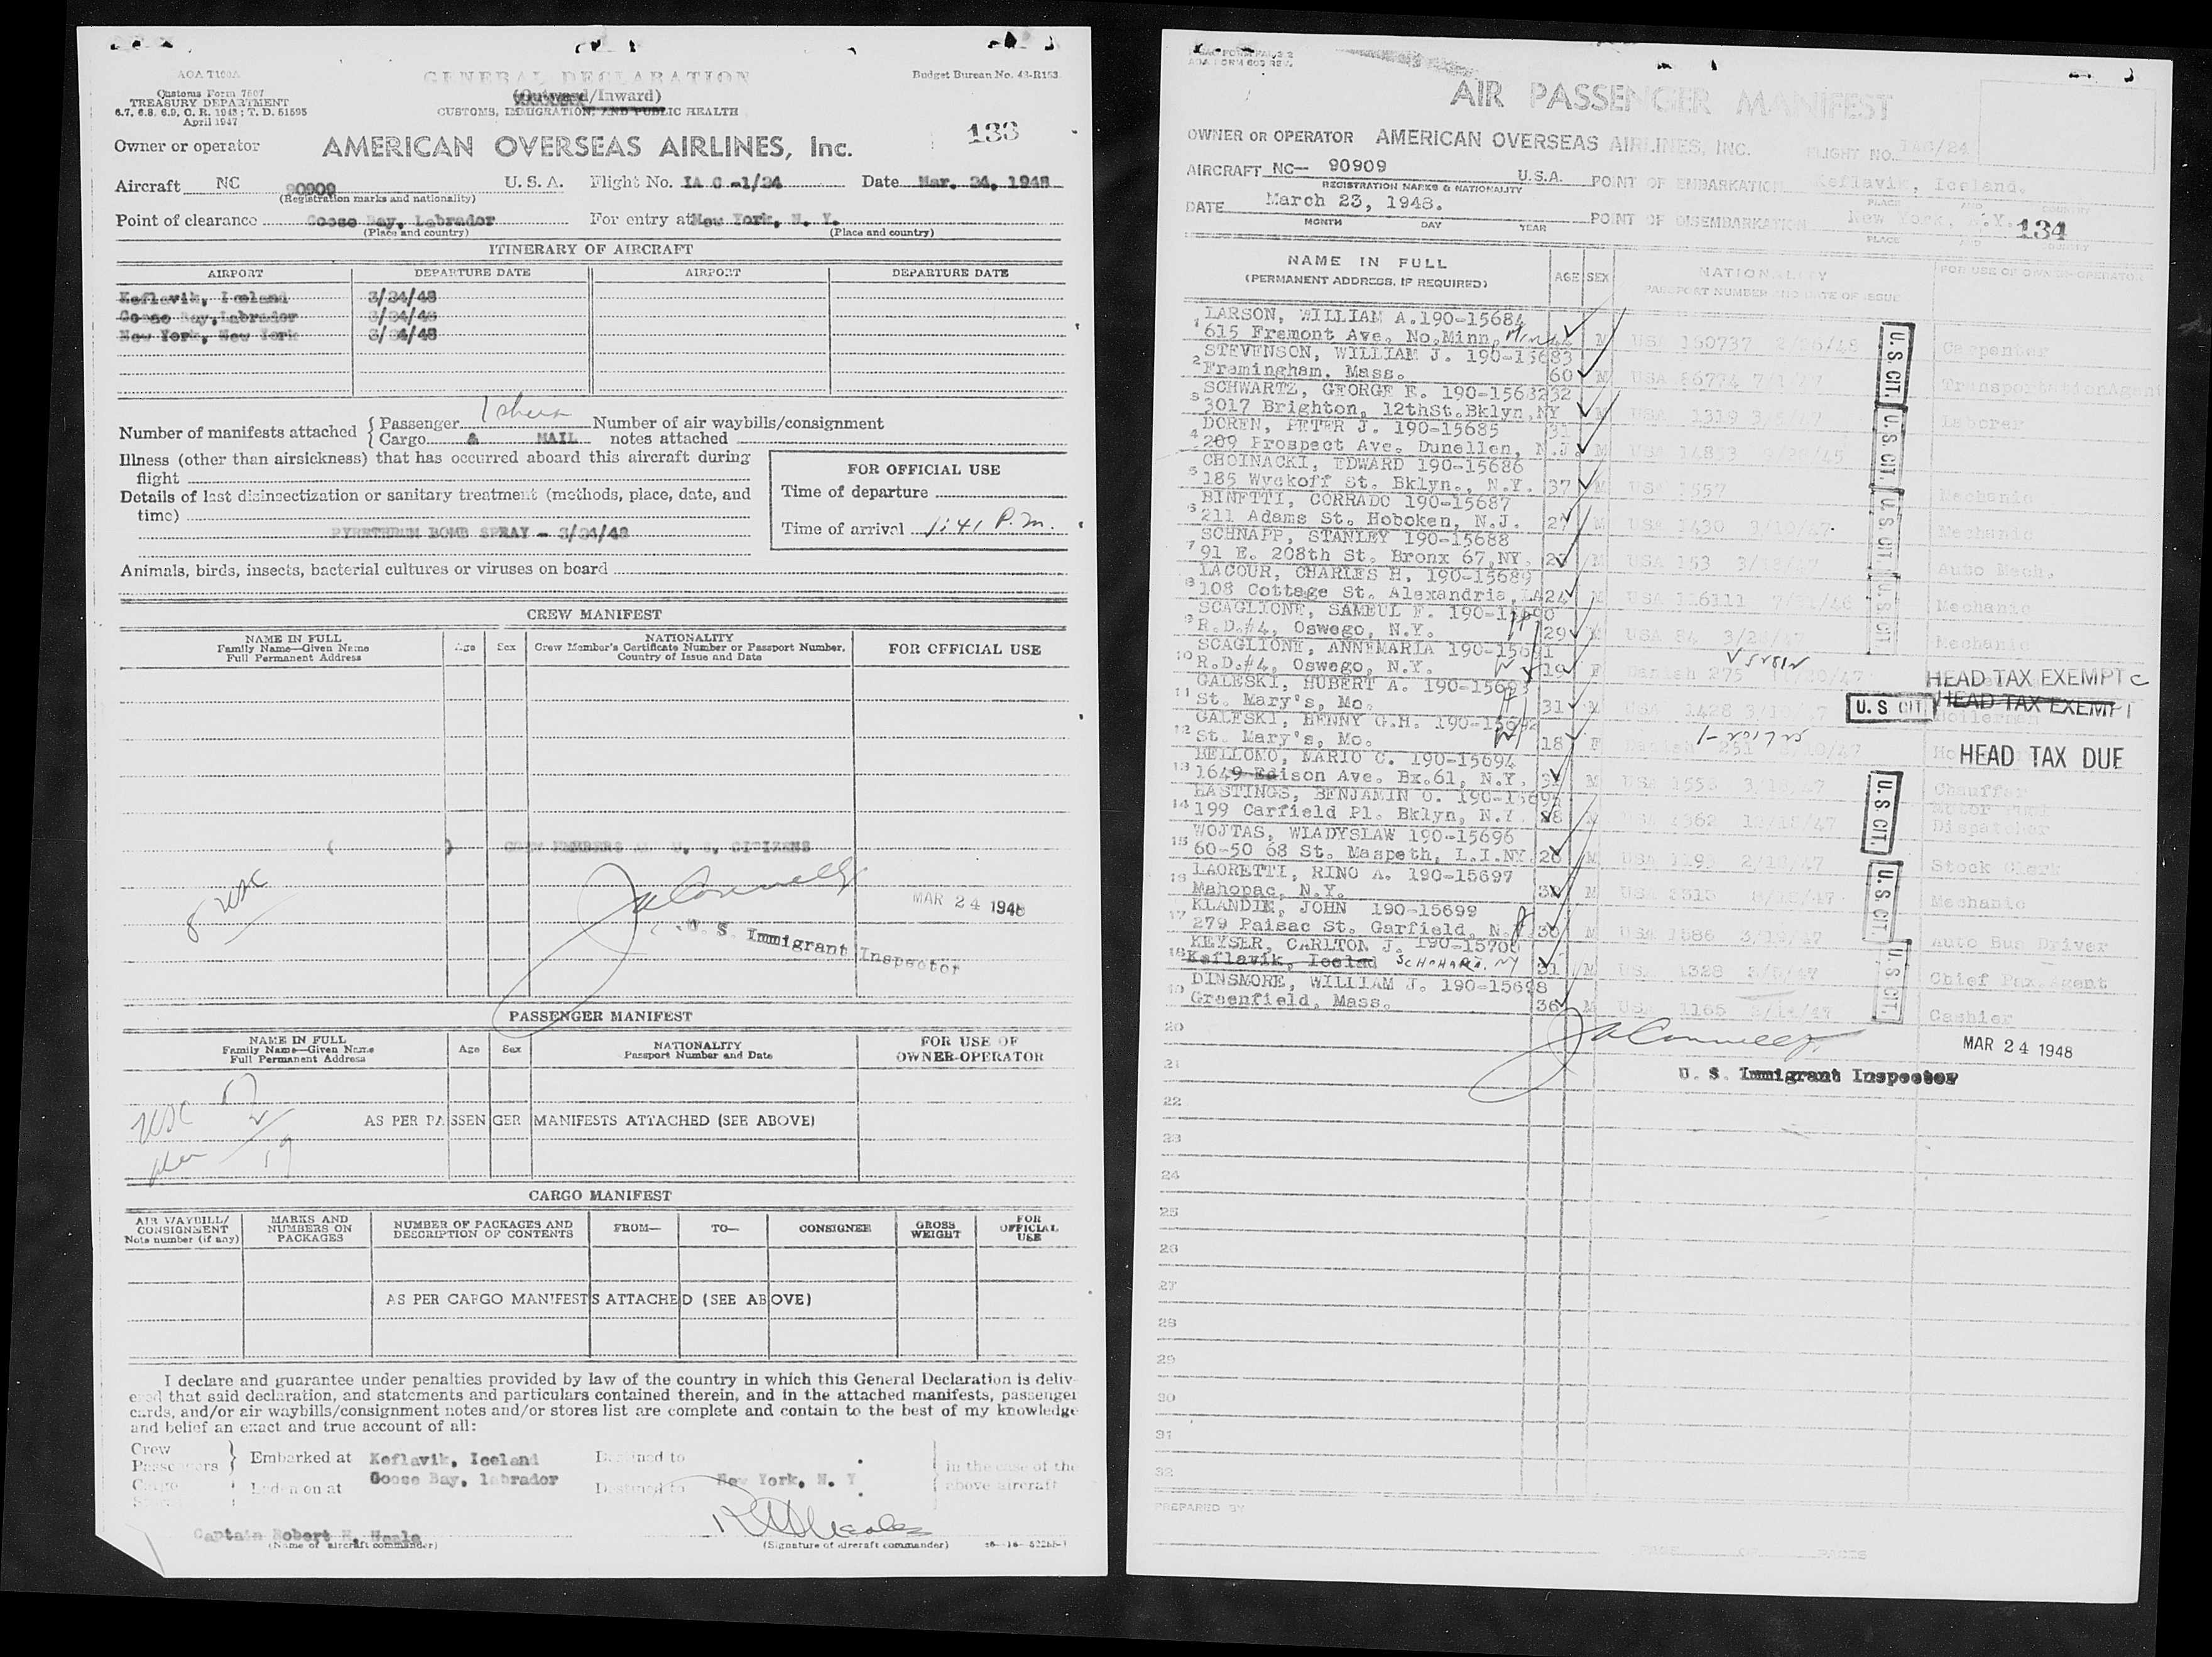 AOA T100A
Customs Form 7507
TREASURY DEPARTMENT
6.7, 6.8, 6.9, C. R. 1943; T. D. 51595
April 1947
GENERAL DECLARATION
(Outward/Inward)
CUSTOMS, IMMIGRATION, AND PUBLIC HEALTH
Budget Bureau No. 43-R153
133
Owner or operator AMERICAN OVERSEAS AIRLINES, Inc.
Aircraft NC 90909 U. S. A. Flight No. IA C -1/24 Date Mar. 24, 1948
(Registration marks and nationality)
Point of clearance Goose Bay, Labrador For entry at New York, N. Y.
(Place and country) (Place and country)
ITINERARY OF AIRCRAFT
AIRPORT DEPARTURE DATE AIRPORT DEPARTURE DATE
Keflavik, Iceland 3/24/48
Goose Bay, Labrador 3/24/48
New York, New York 3/24/48
Number of manifests attached { Passenger 1 sheet Number of air waybills/consignment
Cargo & MAIL notes attached
Illness (other than airsickness) that has occurred aboard this aircraft during
flight
Details of last disinsectization or sanitary treatment (methods, place, date, and
time)
PYRETHRUM BOMB SPRAY - 3/24/48
FOR OFFICIAL USE
Time of departure
Time of arrival 1:41 P.M.
Animals, birds, insects, bacterial cultures or viruses on board
CREW MANIFEST
NAME IN FULL
Family Name—Given Name
Full Permanent Address
Age Sex
NATIONALITY
Crew Member's Certificate Number or Passport Number,
Country of Issue and Date
FOR OFFICIAL USE
( ) CREW MEMBERS U. S. CITIZENS
8 USC
MAR 24 1948
U. S. Immigrant Inspector
PASSENGER MANIFEST
NAME IN FULL
Family Name—Given Name
Full Permanent Address
Age Sex
NATIONALITY
Passport Number and Date
FOR USE OF
OWNER-OPERATOR
USC 17
2
19
AS PER PASSENGER MANIFESTS ATTACHED (SEE ABOVE)
CARGO MANIFEST
AIR WAYBILL/
CONSIGNMENT
Note number (if any)
MARKS AND
NUMBERS ON
PACKAGES
NUMBER OF PACKAGES AND
DESCRIPTION OF CONTENTS
FROM— TO— CONSIGNEE
GROSS
WEIGHT
FOR
OFFICIAL
USE
AS PER CARGO MANIFESTS ATTACHED (SEE ABOVE)
I declare and guarantee under penalties provided by law of the country in which this General Declaration is deliv-
ered that said declaration, and statements and particulars contained therein, and in the attached manifests, passenger
cards, and/or air waybills/consignment notes and/or stores list are complete and contain to the best of my knowledge
and belief an exact and true account of all:
Crew
Passengers } Embarked at Keflavik, Iceland Destined to
Cargo } Laden on at Goose Bay, labrador Destined to New York, N. Y.
in the case of the
above aircraft
Captain Robert H. Heale
(Name of aircraft commander)
(Signature of aircraft commander)
AOA FORM 603 REV.
AIR PASSENGER MANIFEST
OWNER OR OPERATOR AMERICAN OVERSEAS AIRLINES, INC. FLIGHT NO. IAC/24
AIRCRAFT NC- 90909 U.S.A. POINT OF EMBARKATION Keflavik, Iceland.
REGISTRATION MARKS & NATIONALITY PLACE AND COUNTRY
DATE March 23, 1948. POINT OF DISEMBARKATION New York, N.Y. 134
MONTH DAY YEAR PLACE AND COUNTRY
NAME IN FULL
(PERMANENT ADDRESS, IF REQUIRED)
AGE SEX
NATIONALITY
PASSPORT NUMBER AND DATE OF ISSUE
FOR USE OF OWNER-OPERATOR
1 LARSON, WILLIAM A. 190-15684
615 Fremont Ave. No. Minn, Minn M USA 150737 Carpenter
2 STEVENSON, WILLIAM J. 190-15683
Framingham. Mass. 60 M USA 86774 TransportationAgent
3 SCHWARTZ, GEORGE E. 190-15682 32
3017 Brighton, 12thSt.Bklyn,NY M USA 1319 Laborer
4 DOREN, PETER J. 190-15685 31
209 Prospect Ave. Dunellen, N.J. M USA 14853
5 CHOINACKI, EDWARD 190-15686
185 Wyckoff St. Bklyn., N.Y. 37 M USA 1557 Mechanic
6 BINETTI, CORRADO 190-15687
211 Adams St. Hoboken, N.J. 27 M USA 1430 Mechanic
7 SCHNAPP, STANLEY 190-15688
91 E. 208th St. Bronx 67,NY. M USA 153 Auto Mech.
8 LACOUR, CHARLES H. 190-15689
108 Cottage St. Alexandria, LA 24 M USA 116111 Mechanic
9 SCAGLIONE, SAMEUL F. 190-15690
R.D.#4, Oswego, N.Y. 29 M USA Mechanic
10 SCAGLIONE, ANNEMARIA 190-15691
R.D.#4, Oswego, N.Y. 19 F Danish 275
HEAD TAX EXEMPT
11 GALESKI, HUBERT A. 190-15693
St. Mary's, Mo. 31 M USA 1428 Boilerman
HEAD TAX EXEMPT
12 GALESKI, BENNY G.H. 190-15692
St. Mary's, Mo. 18 F Danish 251
HEAD TAX DUE
13 BELLOMO, MARIO C. 190-15694
1649 Edison Ave. Bx.61, N.Y. M USA Chauffer
14 HASTINGS, BENJAMIN O. 190-15695
199 Carfield Pl. Bklyn, N.Y. M Dispatcher
15 WOJTAS, WLADYSLAW 190-15696
60-50 68 St. Maspeth, L.I.NY. 26 M USA Stock Clerk
16 LAORETTI, RINO A. 190-15697
Mahopac, N.Y. M USA Mechanic
17 KLANDIE, JOHN 190-15699
279 Paisac St. Garfield, N.J. M USA 1686 Auto Bus Driver
18 KEYSER, CARLTON J. 190-15700
Keflavik, Icelad SCHOHARIE, NY 31 M USA 1328 Chief Pax. Agent
19 DINSMORE, WILLIAM J. 190-15698
Greenfield, Mass. 36 M USA 1165 Cashier
U.S. CIT.
U.S. CIT.
U.S. CIT.
U.S. CIT.
U.S CIT.
U.S CIT.
U.S CIT.
U.S CIT.
20
MAR 24 1948
21
U. S. Immigrant Inspector
22
23
24
25
26
27
28
29
30
31
32
PREPARED BY
PAGE OF PAGES